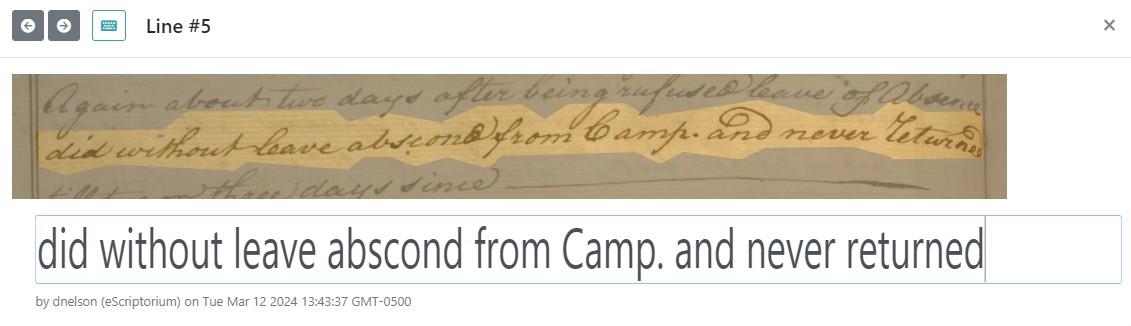 Line #5
Again about two days after being rufused leave of Absence
did without leave abscond from Camp. and never returned
till two or three days since
did without leave abscond from Camp. and never returned
by dnelson (eScriptorium) on Tue Mar 12 2024 13:43:37 GMT-0500